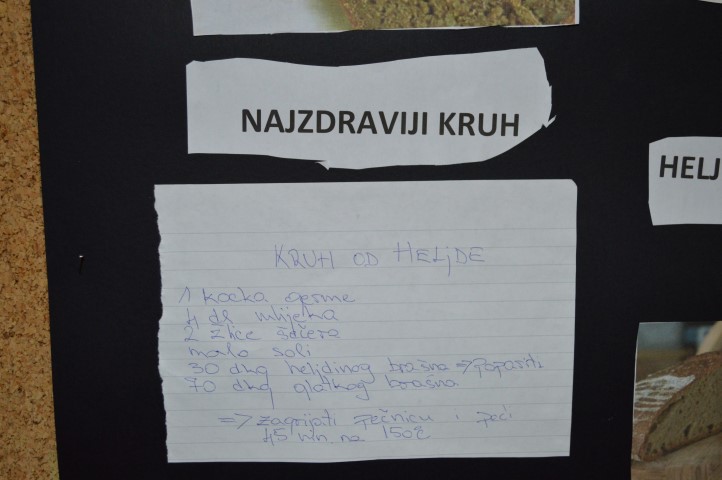 NAJZDRAVIJI KRUH
HELJ
KRUH OD HELJDE
1 kocka germe
4 dl mlijeka
2 žlice šećera
malo soli
30 dkg heljdinog brašna => popariti
70 dkg glatkog brašna
=> zagrijati pečnicu i peći
45 min na 150°C